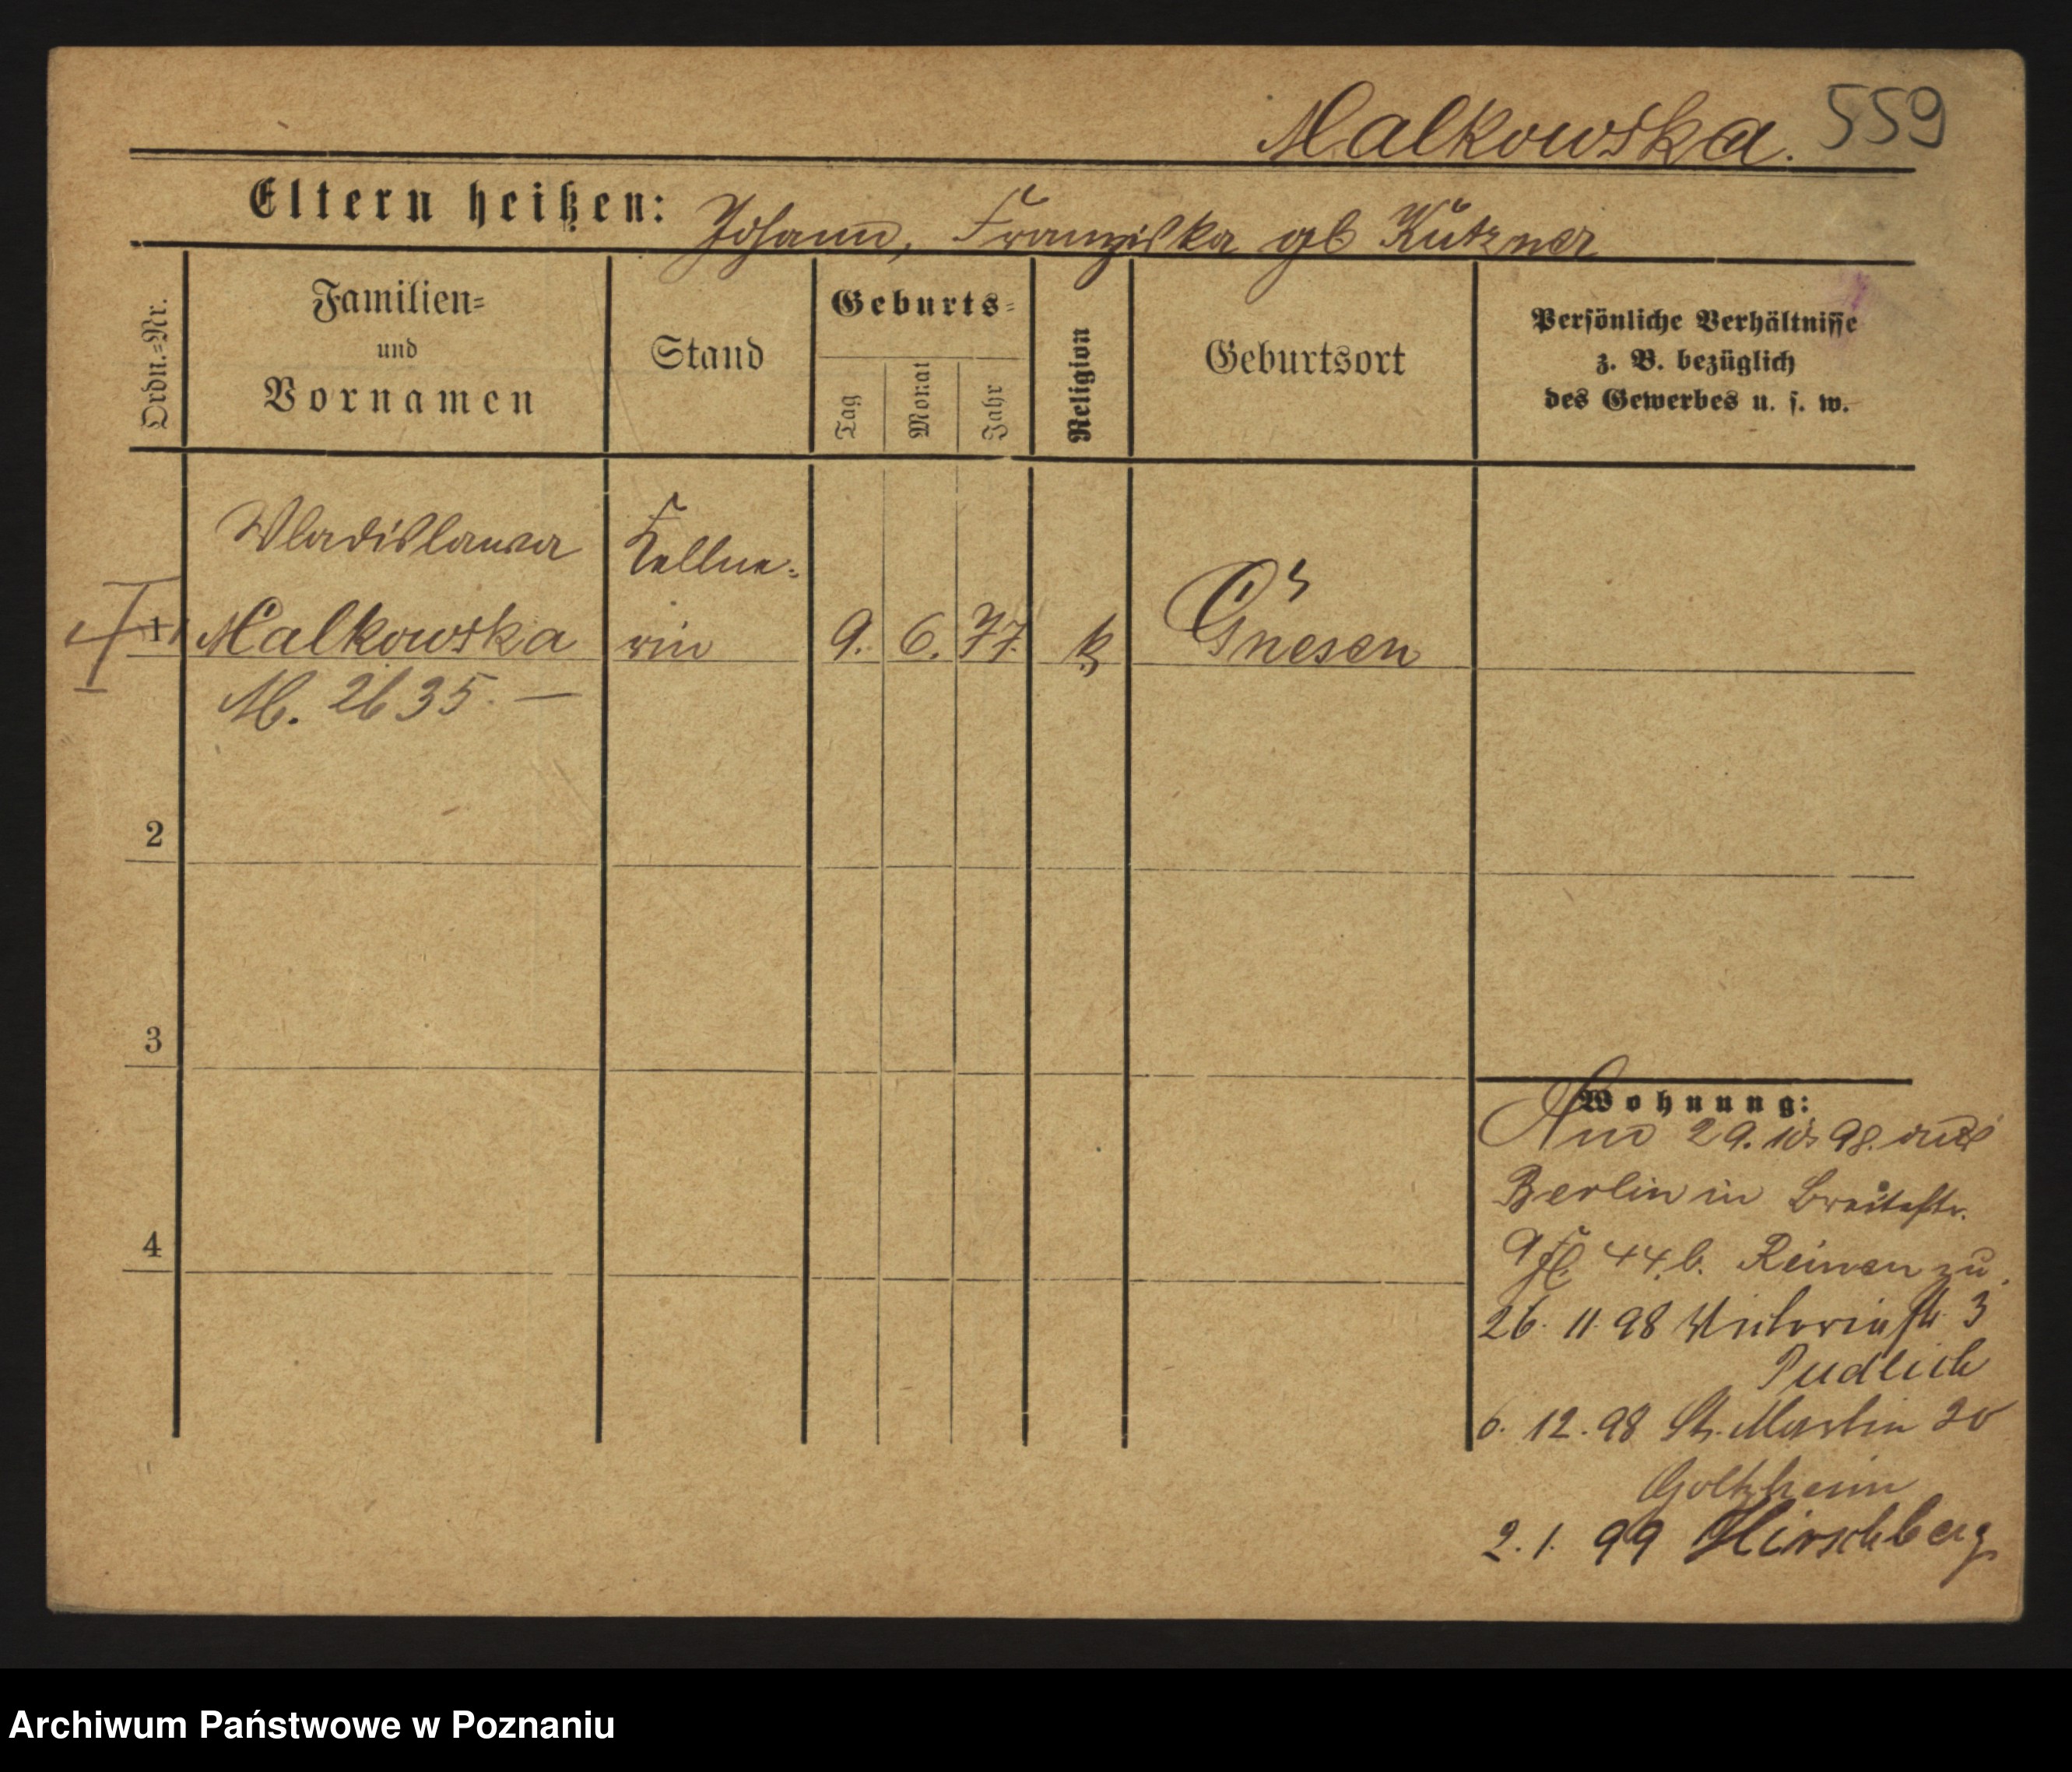 Malkowska. 559
Eltern heißen: Johann, Franziska gb Kutzner
Ordn.=Nr.
Familien=
und
Vornamen
Stand
Geburts=
Tag
Monat
Jahr
Religion
Geburtsort
Persönliche Verhältnisse
z. B. bezüglich
des Gewerbes u. s. w.
Wladislawa
Malkowska
Kellne=
rin
9. 6. 77. k
Gnesen
1
M. 2635. —
2
3
4
Wohnung:
29. 10 98. aus
Berlin in Breitestr.
44. b. zu
26. 11. 98 Victoriastr. 3
Pudlich
6. 12. 98 St. Martin 20
Goltzheim
2. 1. 99 Hirschberg
Archiwum Państwowe w Poznaniu